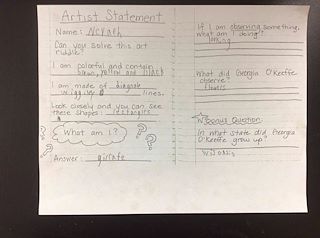 Artist Statement
Name:
Can you solve this art
riddle?
I am colorful and contain
brown, yellow and black
I am made of diagnole
wiggley lines.
Look closely and you can see
these shapes: rectangles
What am I?
Answer: girafe
If I am observing something,
what am I doing?
looking
What did Georgia O'Keeffe
observe?
Flowers
Bonus Question
In what state did Georgia
O'Keeffe grow up?